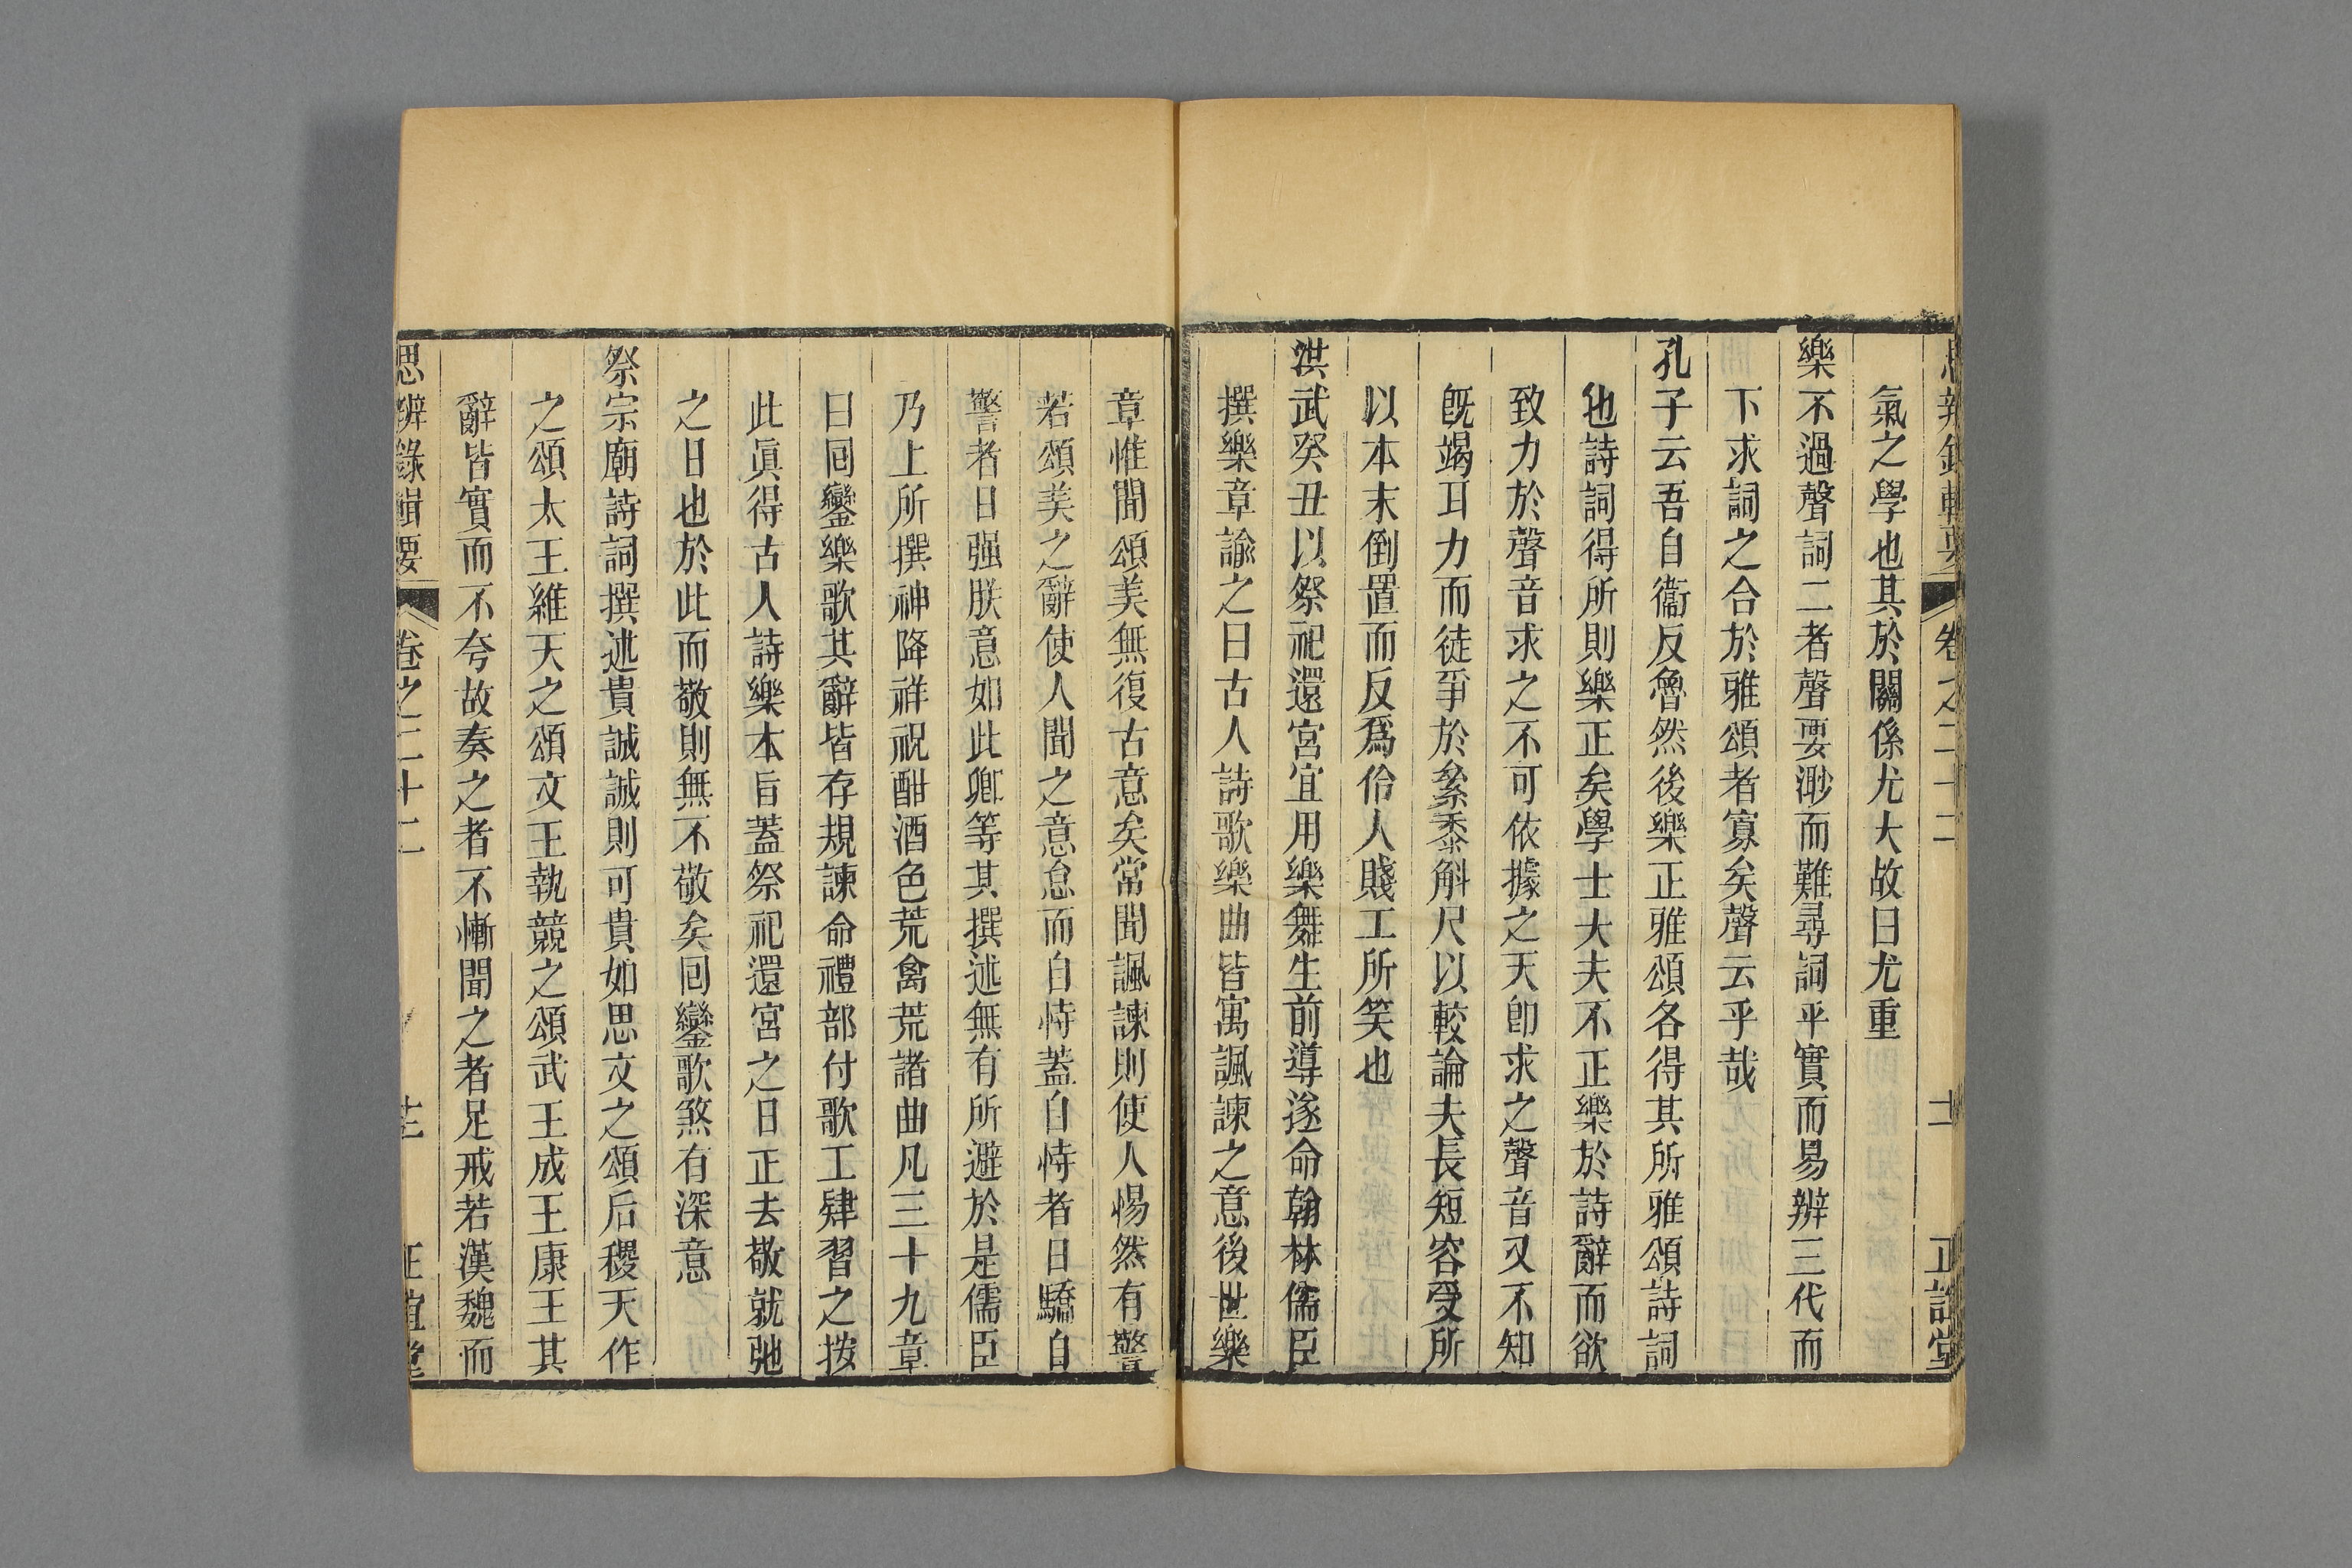 思辨錄輯要 卷之二十二 十一 正誼堂
氣之學也其於關係尤大故曰尤重
樂不過聲詞二者聲要渺而難尋詞平實而易辨三代而
下求詞之合於雅頌者寡矣聲云乎哉
孔子云吾自衞反魯然後樂正雅頌各得其所雅頌詩詞
也詩詞得所則樂正矣學士大夫不正樂於詩辭而欲
致力於聲音求之不可依據之天卽求之聲音又不知
旣竭耳力而徒爭於絫黍斛尺以較論夫長短容受所
以本末倒置而反爲伶人賤工所笑也
洪武癸丑以祭祀還宮宜用樂舞生前導遂命翰林儒臣
撰樂章諭之曰古人詩歌樂曲皆寓諷諫之意後世樂
章惟聞頌美無復古意矣常聞諷諫則使人惕然有警
若頌美之辭使人聞之意怠而自恃蓋自恃者日驕自
警者日强朕意如此卿等其撰述無有所避於是儒臣
乃上所撰神降祥祝酣酒色荒禽荒諸曲凡三十九章
曰回鑾樂歌其辭皆存規諫命禮部付歌工肄習之按
此眞得古人詩樂本旨蓋祭祀還宮之日正去敬就弛
之日也於此而敬則無不敬矣回鑾歌煞有深意
祭宗廟詩詞撰述貴誠誠則可貴如思文之頌后稷天作
之頌太王維天之頌文王執競之頌武王成王康王其
辭皆實而不夸故奏之者不慚聞之者足戒若漢魏而
思辨錄輯要 卷之二十二 正誼堂